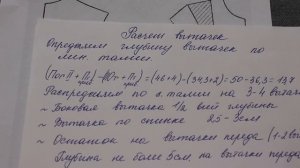 Расчет вытачек
Определяем глубину вытачек по
лин. талии.
=(46+4)-(34,3+2)=50-36,3=13,7
Распределяем по л. талии на 3-4 вытач
~ Боковая вытачка 1/2 всей глубины
~ Вытачка по спинке 2,5-3см
~ Остаток на вытачки переда (1-2 выт
Глубина не более 5см, на вытачке перед